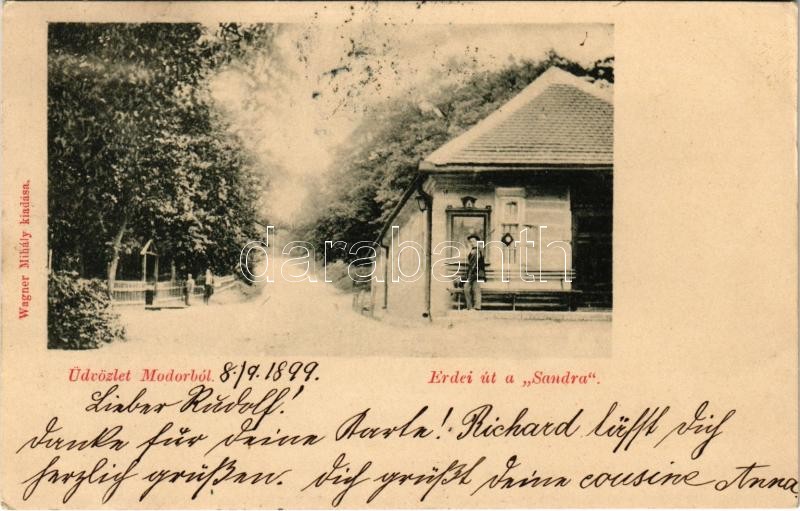 Wagner Mihály kiadása.
darabanth
Üdvözlet Modorból. 8./9.1899.
Erdei út a „Sandra“.
Lieber Rudolf!
danke für deine Karte! Richard läßt dich
herzlich grüßen. Dich grüßt deine cousine Anna